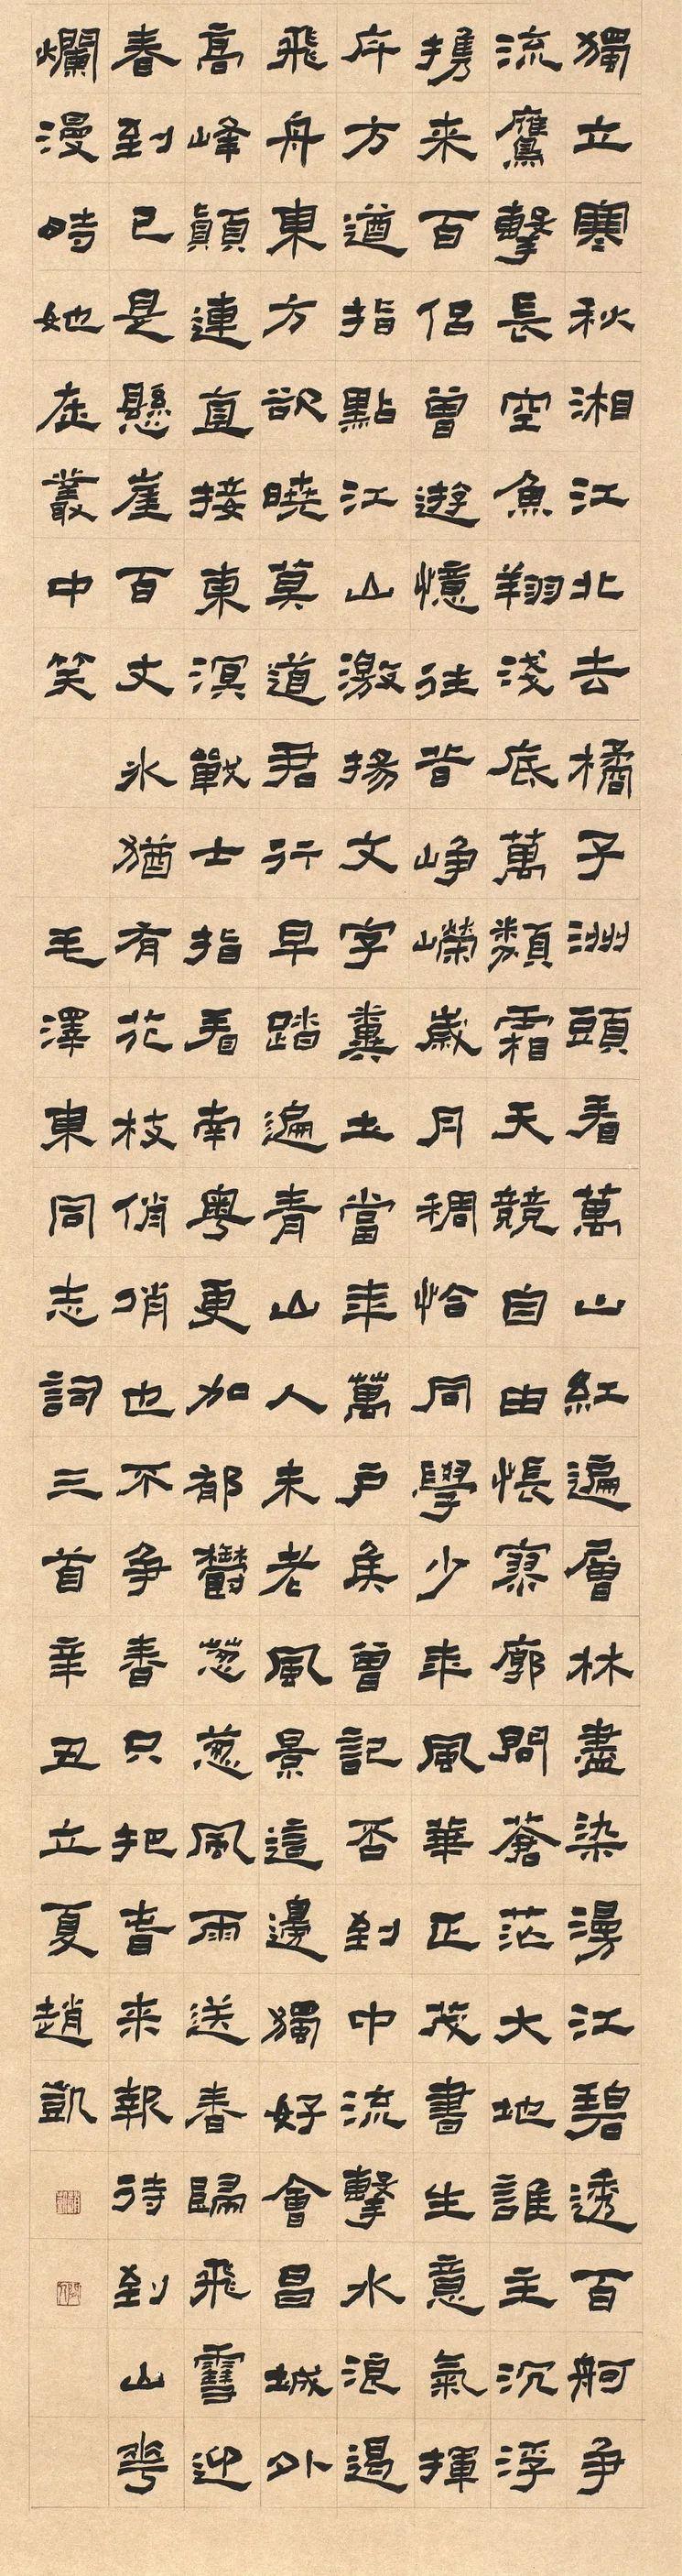 獨立寒秋湘江北去橘子洲頭看萬山紅遍層林盡染漫江碧透百舸争
流鷹擊長空魚翔淺底萬類霜天競自由悵寥廓問蒼茫大地誰主沉浮
攜来百侶曾遊憶往昔崢嶸歲月稠恰同學少年風華正茂書生意氣揮
斥方遒指點江山激揚文字糞土當年萬户矦曾記否到中流擊水浪遏
飛舟東方欲曉莫道君行早踏遍青山人未老風景這邊獨好會昌城外
高峰顛連直接東溟戰士指看南粤更加郁鬱葱葱風雨送春歸飛雪迎
春到已是懸崖百丈冰猶有花枝俏俏也不争春只把春来報待到山花
爛漫時她在叢中笑
毛澤東同志詞三首辛丑立夏趙凱